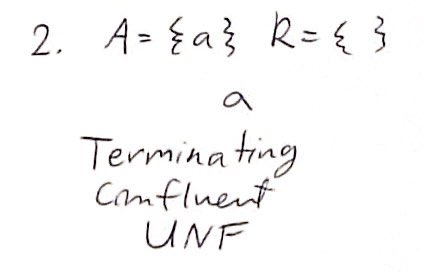 2. A = {a} R = { }
a
Terminating
Confluent
UNF